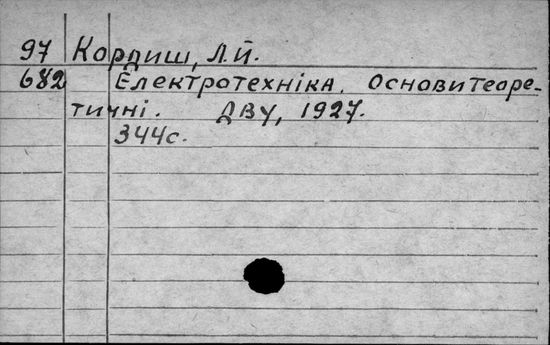 97 Кордиш, Л.Й.
682 Електротехніка. Основи теоре-
тичні. ДВУ, 1927.
344с.